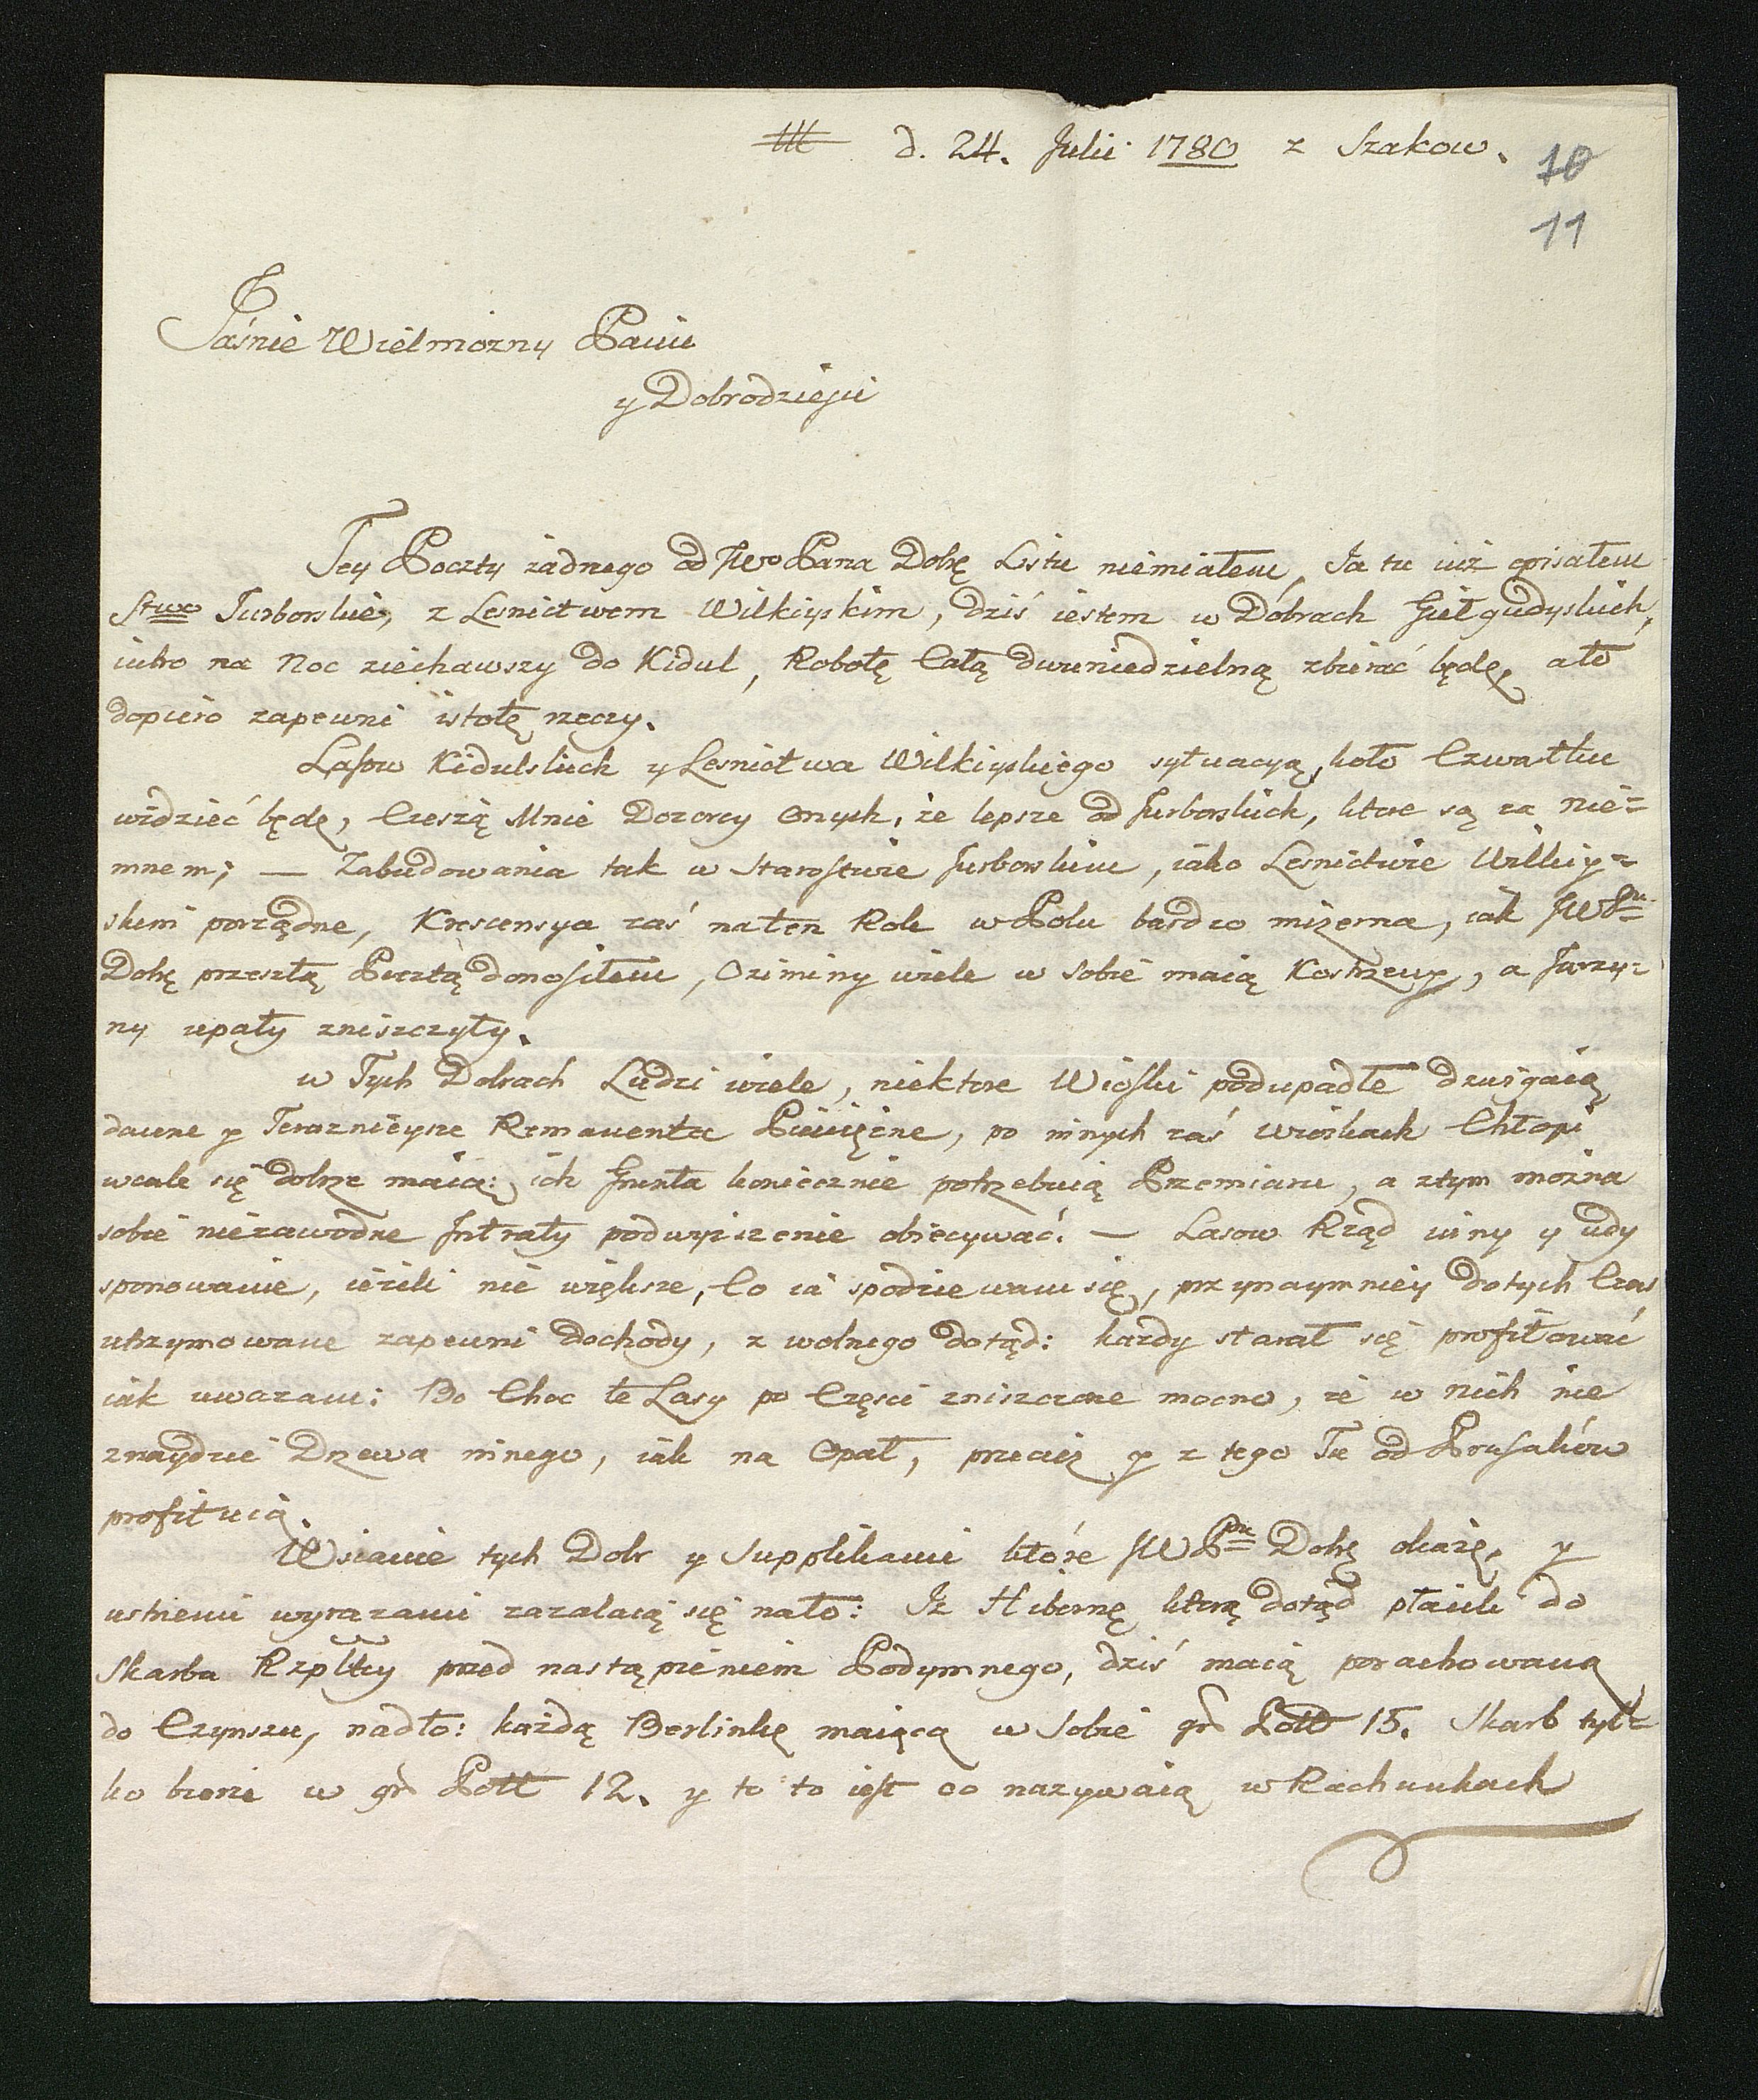 d. 24. Julii 1780 z Szakow.
10
11
Jaśnie Wielmożny Panie
y Dobrodzieju
Tey Poczty żadnego od JWo Pana Dobę Listu niemiałem, Ja tu iuż opisałem
Stwo Jurborskie, z Lesnictwem Wilkiyskim, dziś iestem w Dobrach Giełgudyskich,
iutro na Noc ziechawszy do Kidul, Robotę Całą dwuniedzielną zbierać będę, a to
dopiero zapewni istotę rzeczy.
Lasow Kidulskich y Lesnictwa Wilkiyskiego sytuacyą, koło Czwartku
widzieć będę, Cieszą Mnie Dozorcy onych, że lepsze od Jurborskich, ktore są za Nie=
mnem; — Zabudowania tak w Starostwie Jurborskim, iako Lesnictwie Wilkiy=
skim porządne, Krescensya zaś na ten Rok w Polu bardzo mizerna, iak JWPnu
Dobę przeszłą Pocztą donosiłem, Oziminy wiele w sobie maią Kostrzewy, a Jarzy=
ny upały zniszczyły.
w Tych Dobrach Ludzi wiele, niektore Wioski podupadłe dzwigaią
dawne y Teraznieysze Remanenta Pieniężne, po innych zaś wioskach Chłopi
wcale się dobrze maią: ich Grunta koniecznie potrzebuią Przemiaru, a ztym można
sobie niezawodne Intraty podwyższenie obiecywać. — Lasow Rząd inny y udy
sponowanie, ieżeli nie większe, Co ia spodziewam się, przynaymniey dotych Czas
utrzymowane zapewni dochody, z wolnego dotąd: każdy starał się profitować
iak uwazam: Bo Choc te Lasy po Części zniszczone mocno, że w nich nie
znaydzie Drzewa innego, iak na Opał, przecież y z tego Tu od Prusaków
profituią.
Wsianie tych Dobr y Supplikami które JWPnu Dobę okażę, y
ustnemi wyrazami zazalaią się nato: Iż Hibernę ktorą dotąd płacili do
Skarbu Rzpltey przed nastąpieniem Podymnego, dziś maią porachowaną
do Czynszu, nadto: każdą Berlinkę maiącą w Sobie gr Poll 15. Skarb tyl=
ko bierze w gr Poll 12. y to to iest co nazywaią w Rachunkach